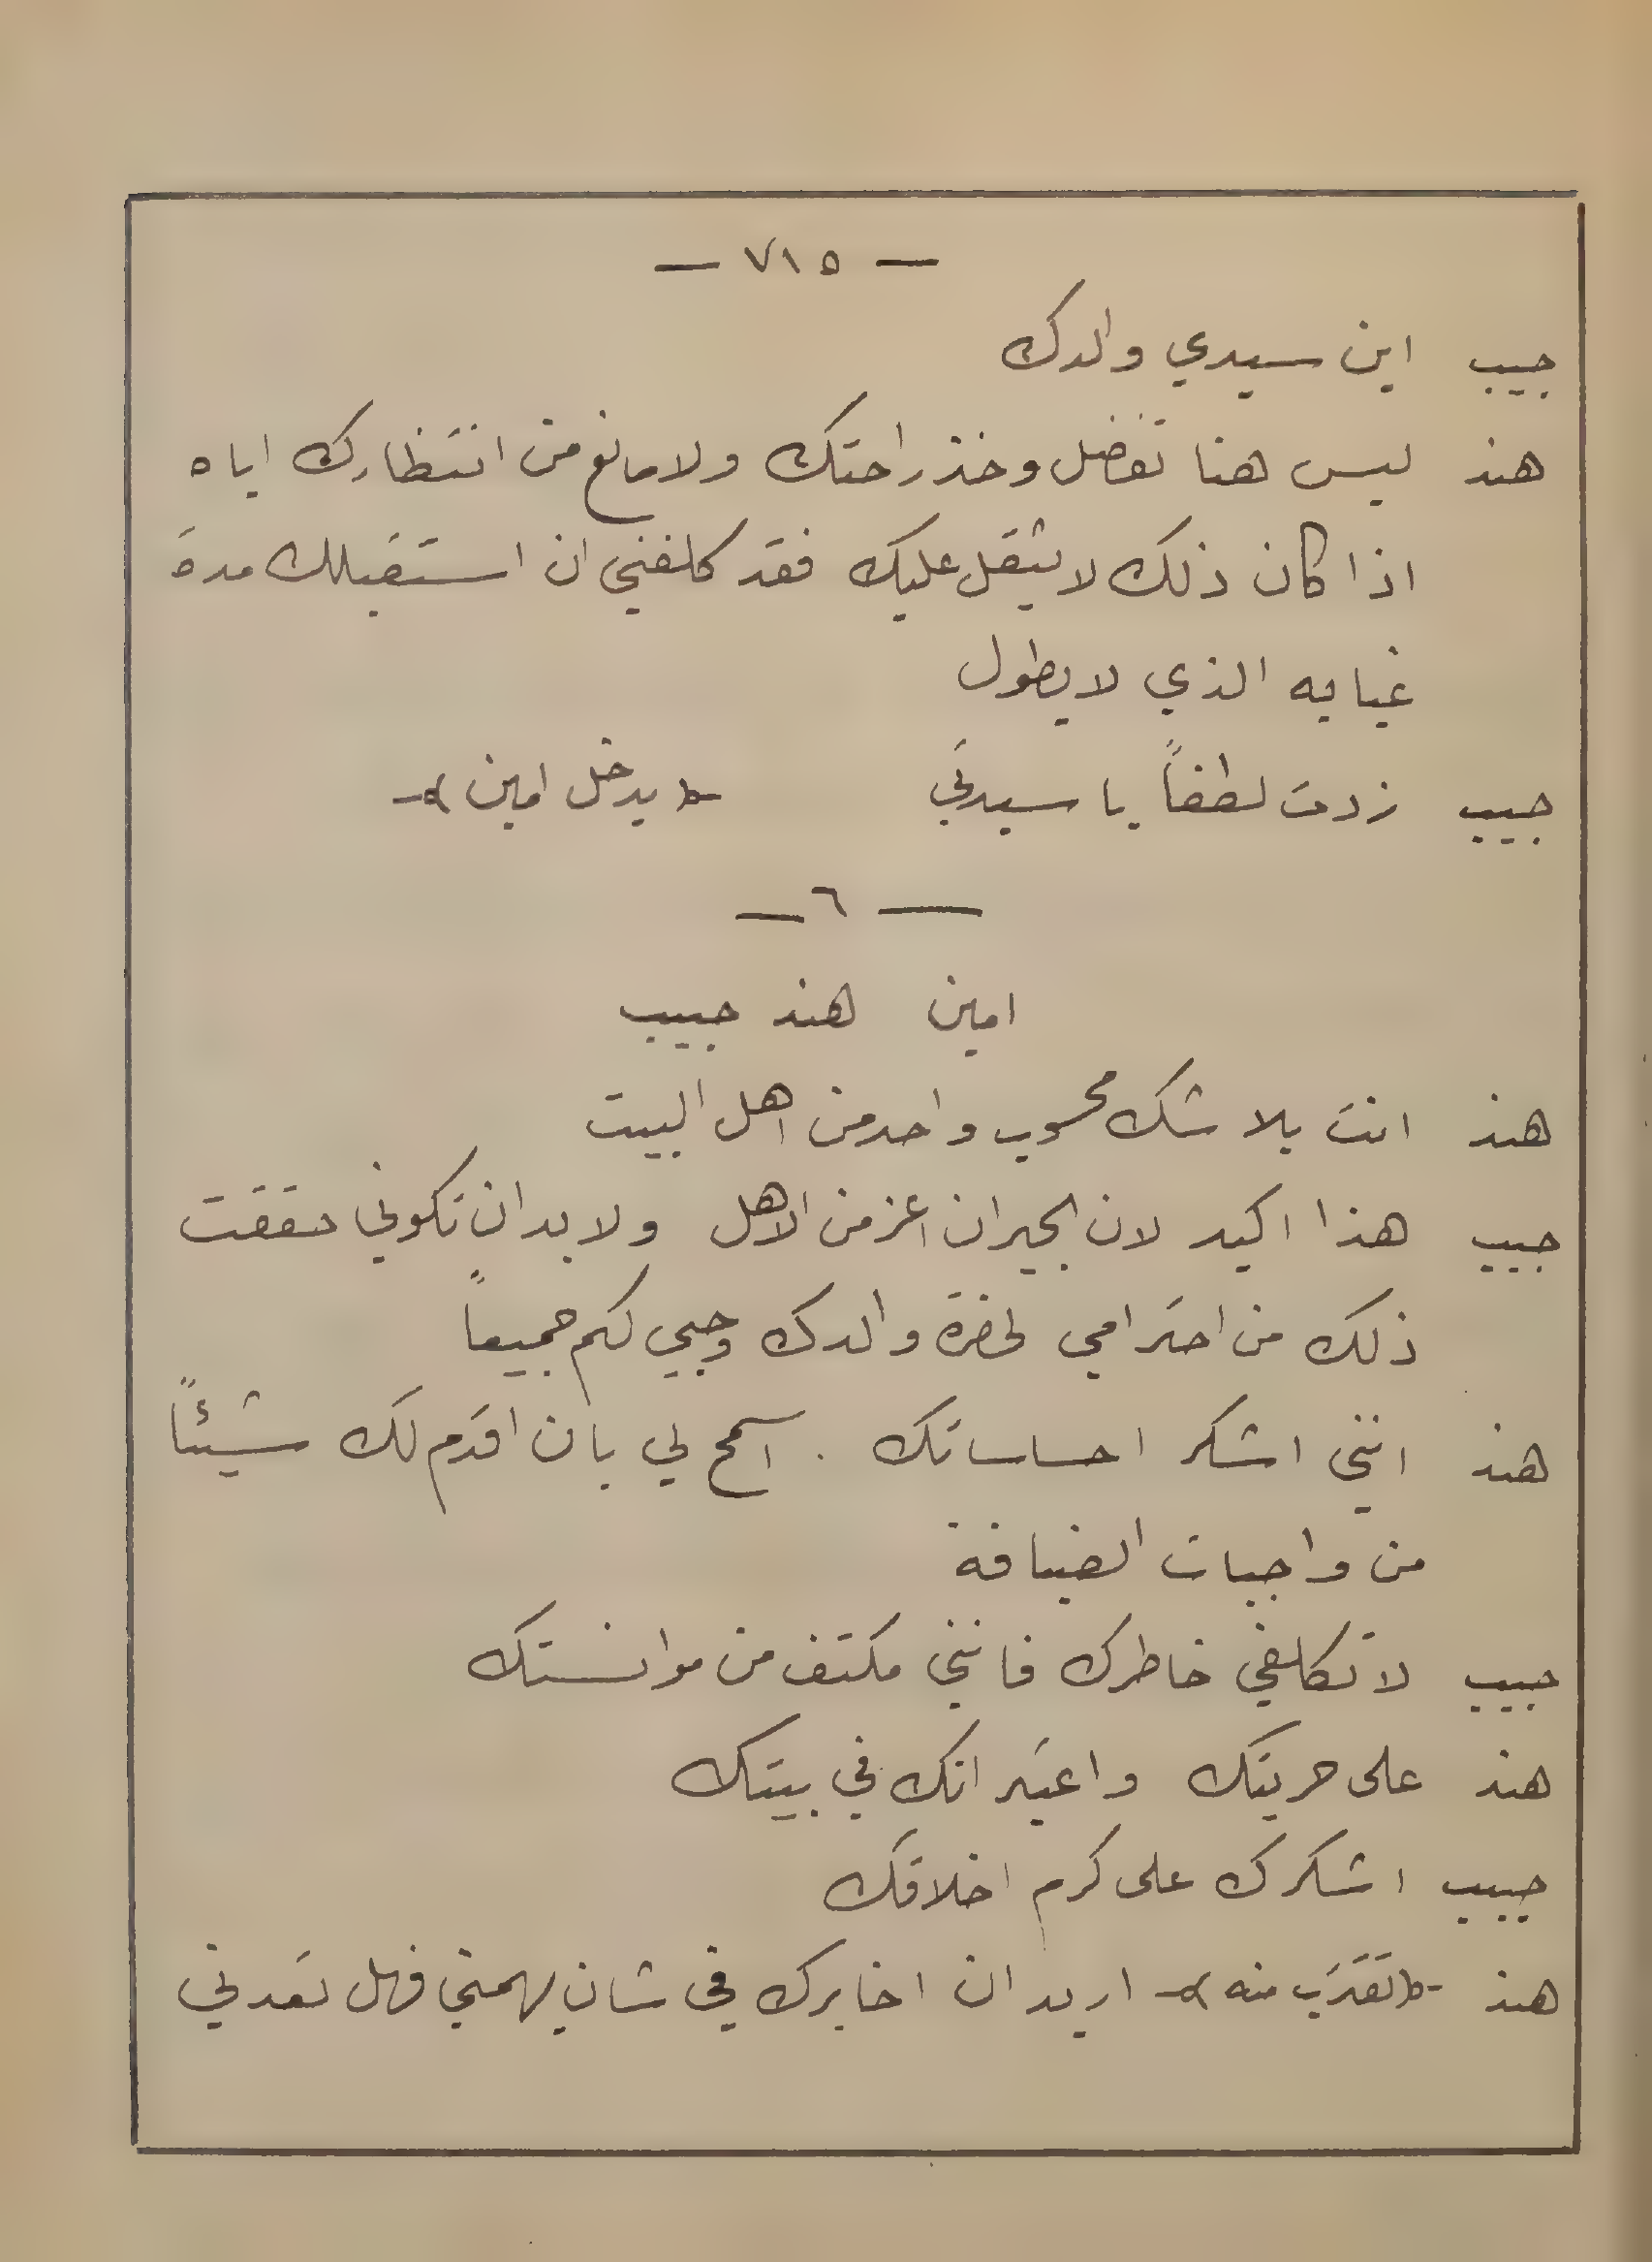 — ٧١٥ —
حبيب اين سيدي والدك
هند ليس هنا تفضل وخذ راحتك ولا مانع من انتظارك اياه
اذا كان ذلك لا يثقل عليك فقد كلفني ان استقبلك مدة
غيابه الذي لا يطول
حبيب زدت لطفاً يا سيدتي (يدخل امين)
— ٦ —
امين هند حبيب
هند انت بلا شك محسوب واحد من اهل البيت
حبيب هذا اكيد لان الجيران اعز من الاهل ولا بد ان تكوني حققت
ذلك من احترامي لحضرة والدك وحبي لكم جميعاً
هند انني اشكر احساساتك . اسمح لي بان اقدم لك شيئاً
من واجبات الضيافة
حبيب لا تكلفي خاطرك فانني مكتف من موانستك
هند على حريتك واعتبر انك في بيتك
حبيب اشكرك على كرم اخلاقك
هند (تقترب منه) اريد ان اخابرك في شان يهمني فهل تعدني